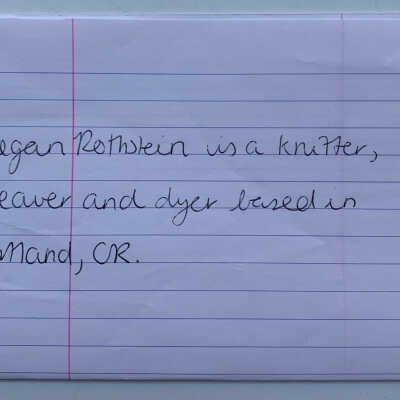 egan Rothstein is a knitter,
eaver and dyer based in
rtland, OR.